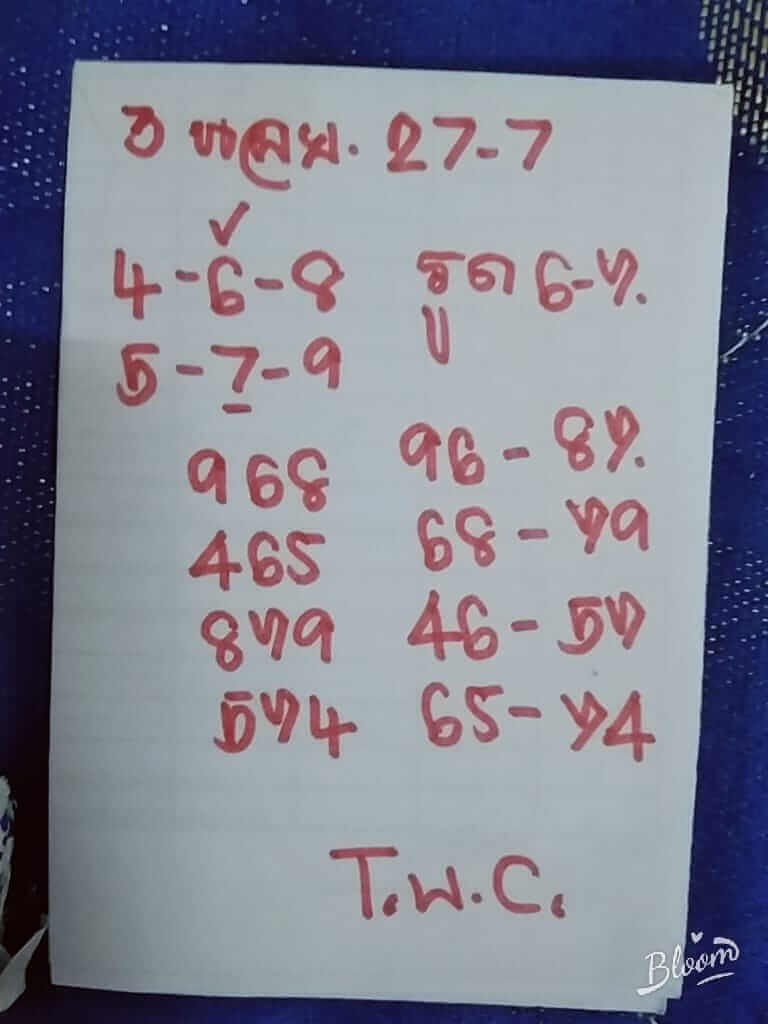 27-7
4-6-8 รูด 6-7.
5-7-9 บ
968 96-87.
465 68-79
879 46-57
574 65-74
T.W.C.
Bloom